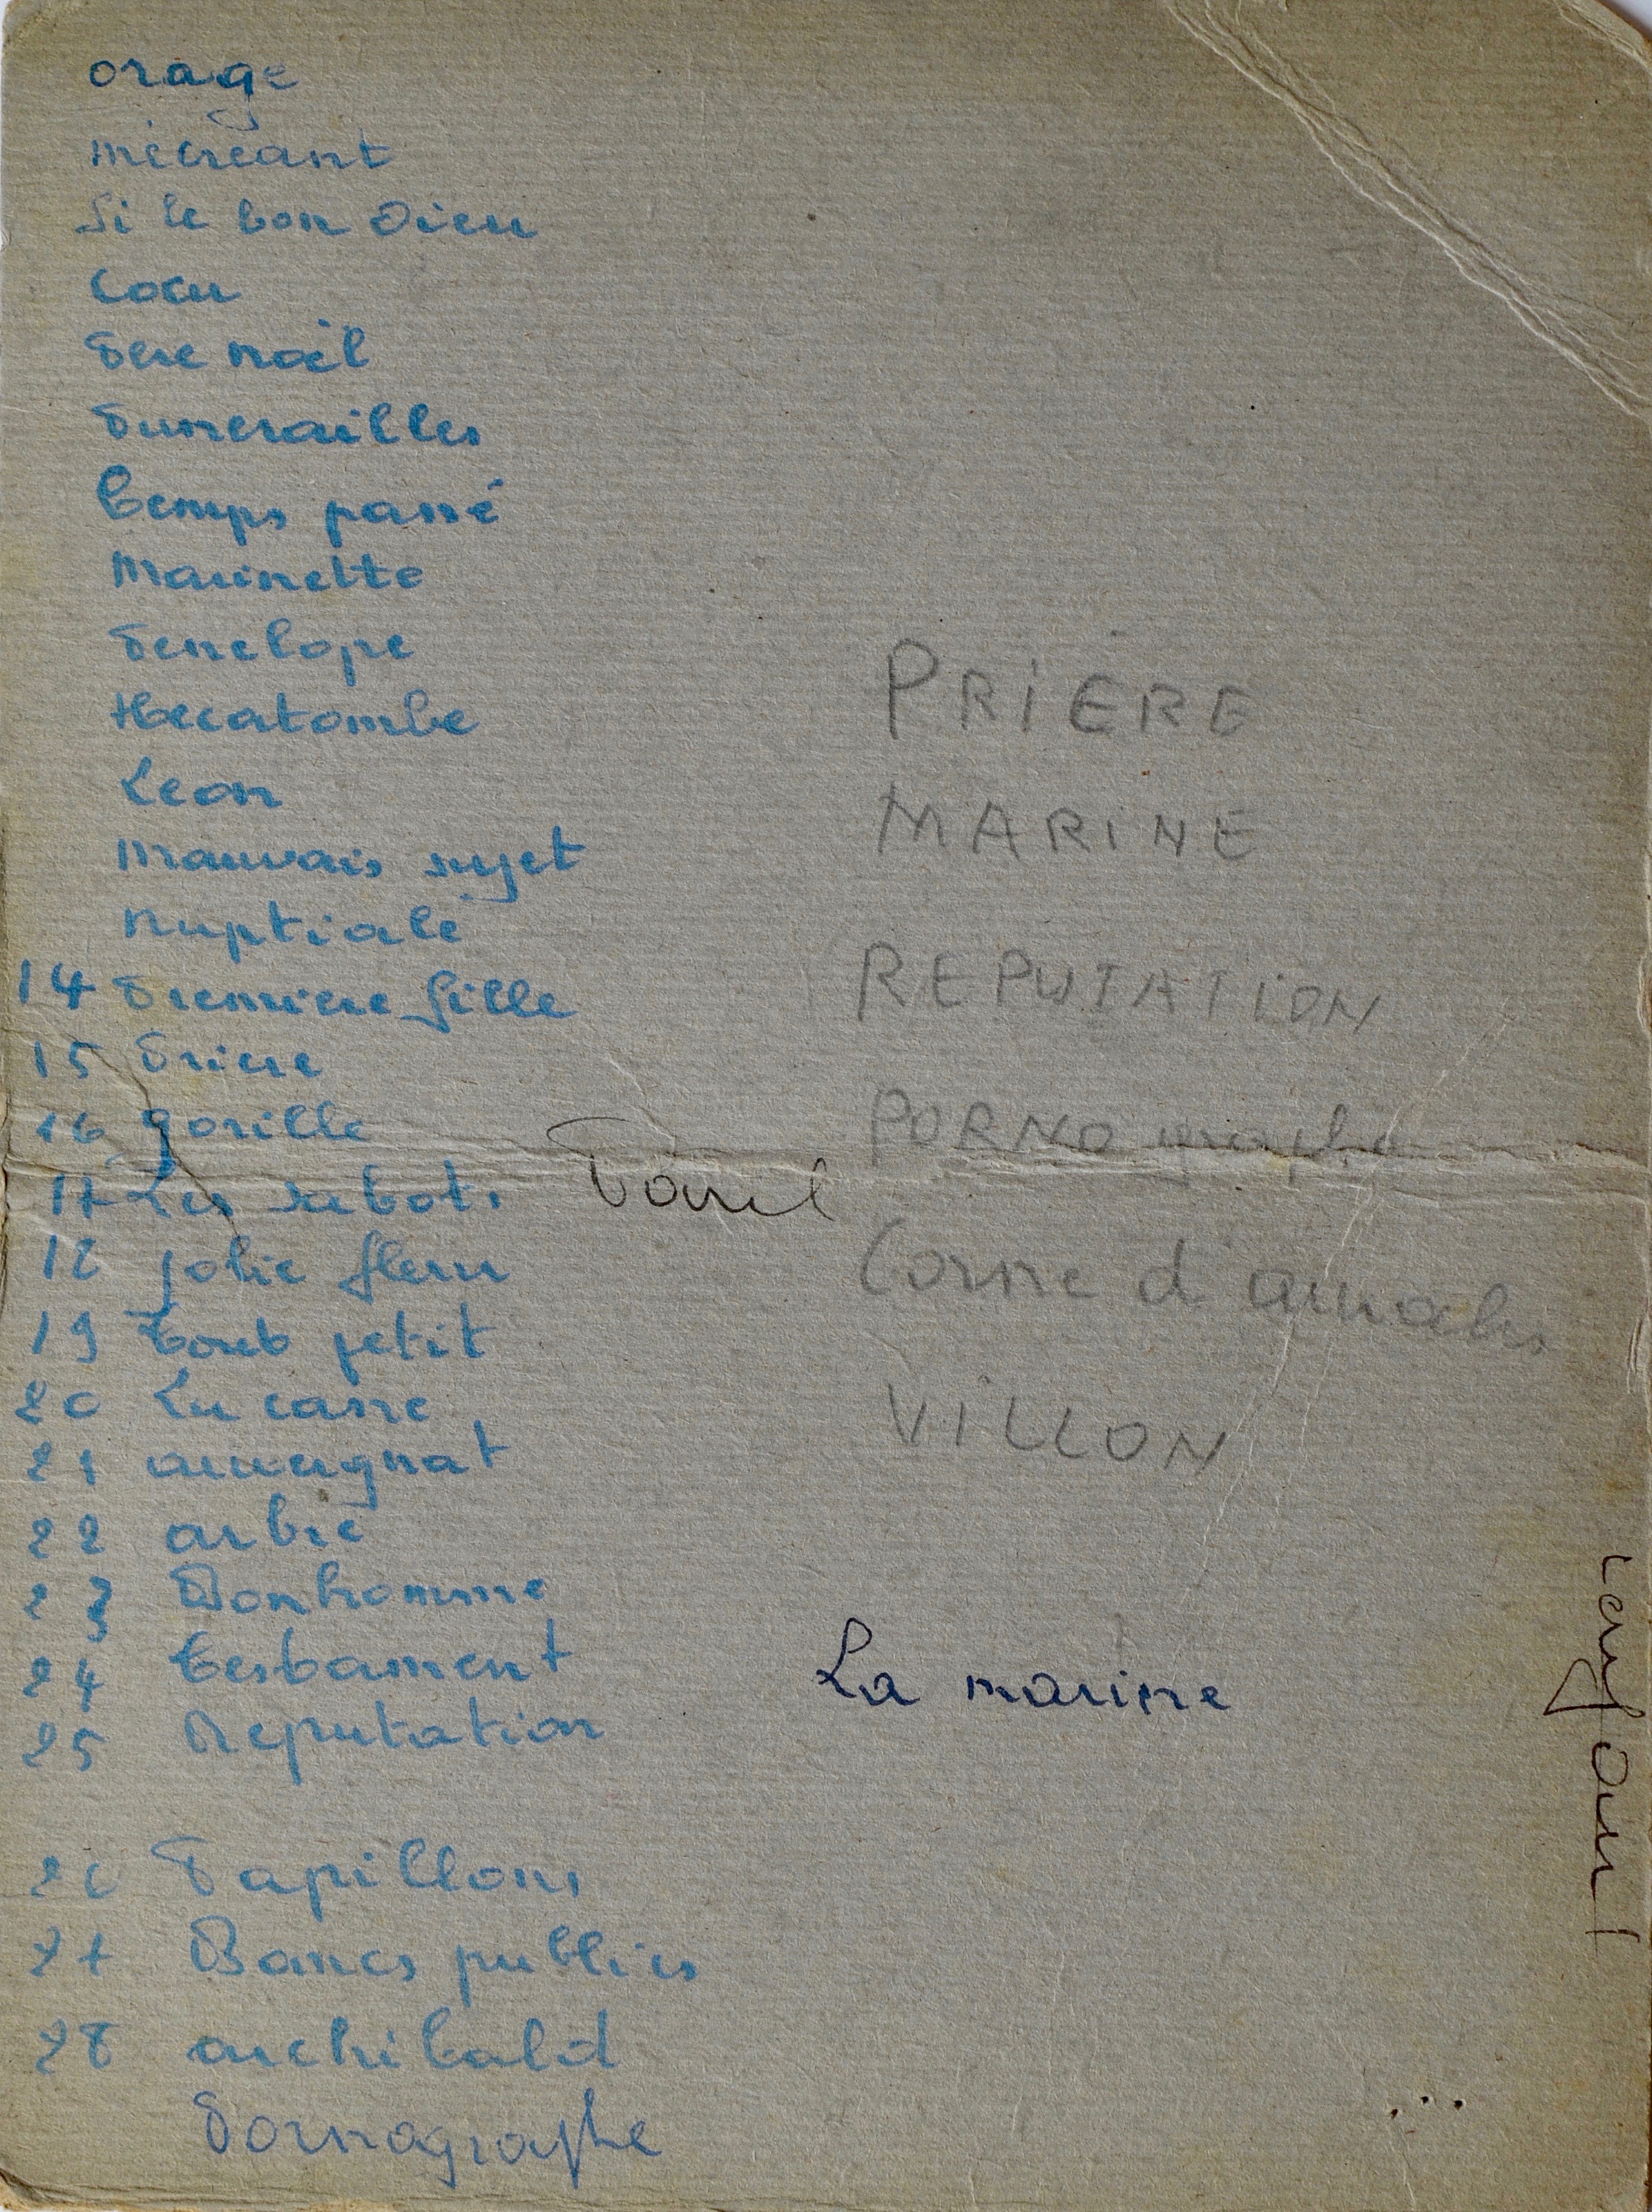 orage
mécréant
Si le bon Dieu
Cocu
Pere noël
Funerailles
temps passé
Marinette
Penelope
Hecatombe
Leon
Mauvais sujet
Nuptiale
14 Premiere fille
15 Priere
16 gorille
17 Les sabots
18 jolie fleur
19 tout petit
20 Lu casse
21 auvergnat
22 arbre
23 Bonhomme
24 testament
25 Reputation
26 Papillons
27 Bancs publics
28 archibald
Pornographe
PRIÈRE
MARINE
REPUTATION
PORNO graphe
Corne d'aurochs
VILLON
La marine